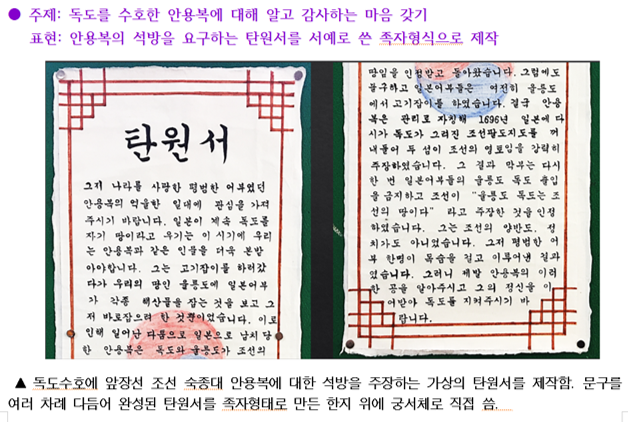 ● 주제: 독도를 수호한 안용복에 대해 알고 감사하는 마음 갖기
표현: 안용복의 석방을 요구하는 탄원서를 서예로 쓴 족자형식으로 제작
탄원서
그저 나라를 사랑한 평범한 어부였던
안용복의 억울한 일대에 관심을 가져
주시기 바랍니다. 일본이 계속 독도를
자기 땅이라고 우기는 이 시기에 우리
는 안용복과 같은 인물을 더욱 본받
아야합니다. 그는 고기잡이를 하러갔
다가 우리의 땅인 울릉도에 일본어부
가 각종 해산물을 잡는 것을 보고 그
저 바로잡으려 한 것뿐이었습니다. 이로
인해 일어난 다툼으로 일본으로 납치 당
한 안용복은 독도와 울릉도가 조선의
땅임을 인정받고 돌아왔습니다. 그럼에도
불구하고 일본어부들은 여전히 울릉도
에서 고기잡이를 하였습니다. 결국 안용
복은 관리로 자칭해 1696년 일본에 다
시가 독도가 그려진 조선팔도지도를 꺼
내들어 두 섬이 조선의 영토임을 강력히
주장하였습니다. 그 결과 막부는 다시
한 번 일본어부들의 울릉도 독도 출입
을 금지하고 조선이 "울릉도 독도는 조
선의 땅이다" 라고 주장한 것을 인정
하였습니다. 그는 조선의 양반도, 정
치가도 아니었습니다. 그저 평범한 어
부 한명이 목숨을 걸고 이루어낸 결과
였습니다. 그러니 제발 안용복의 이러
한 공을 알아주시고 그의 정신을 이
어받아 독도를 지켜주시기 바
랍니다.
▲ 독도수호에 앞장선 조선 숙종대 안용복에 대한 석방을 주장하는 가상의 탄원서를 제작함. 문구를
여러 차례 다듬어 완성된 탄원서를 족자형태로 만든 한지 위에 궁서체로 직접 씀.